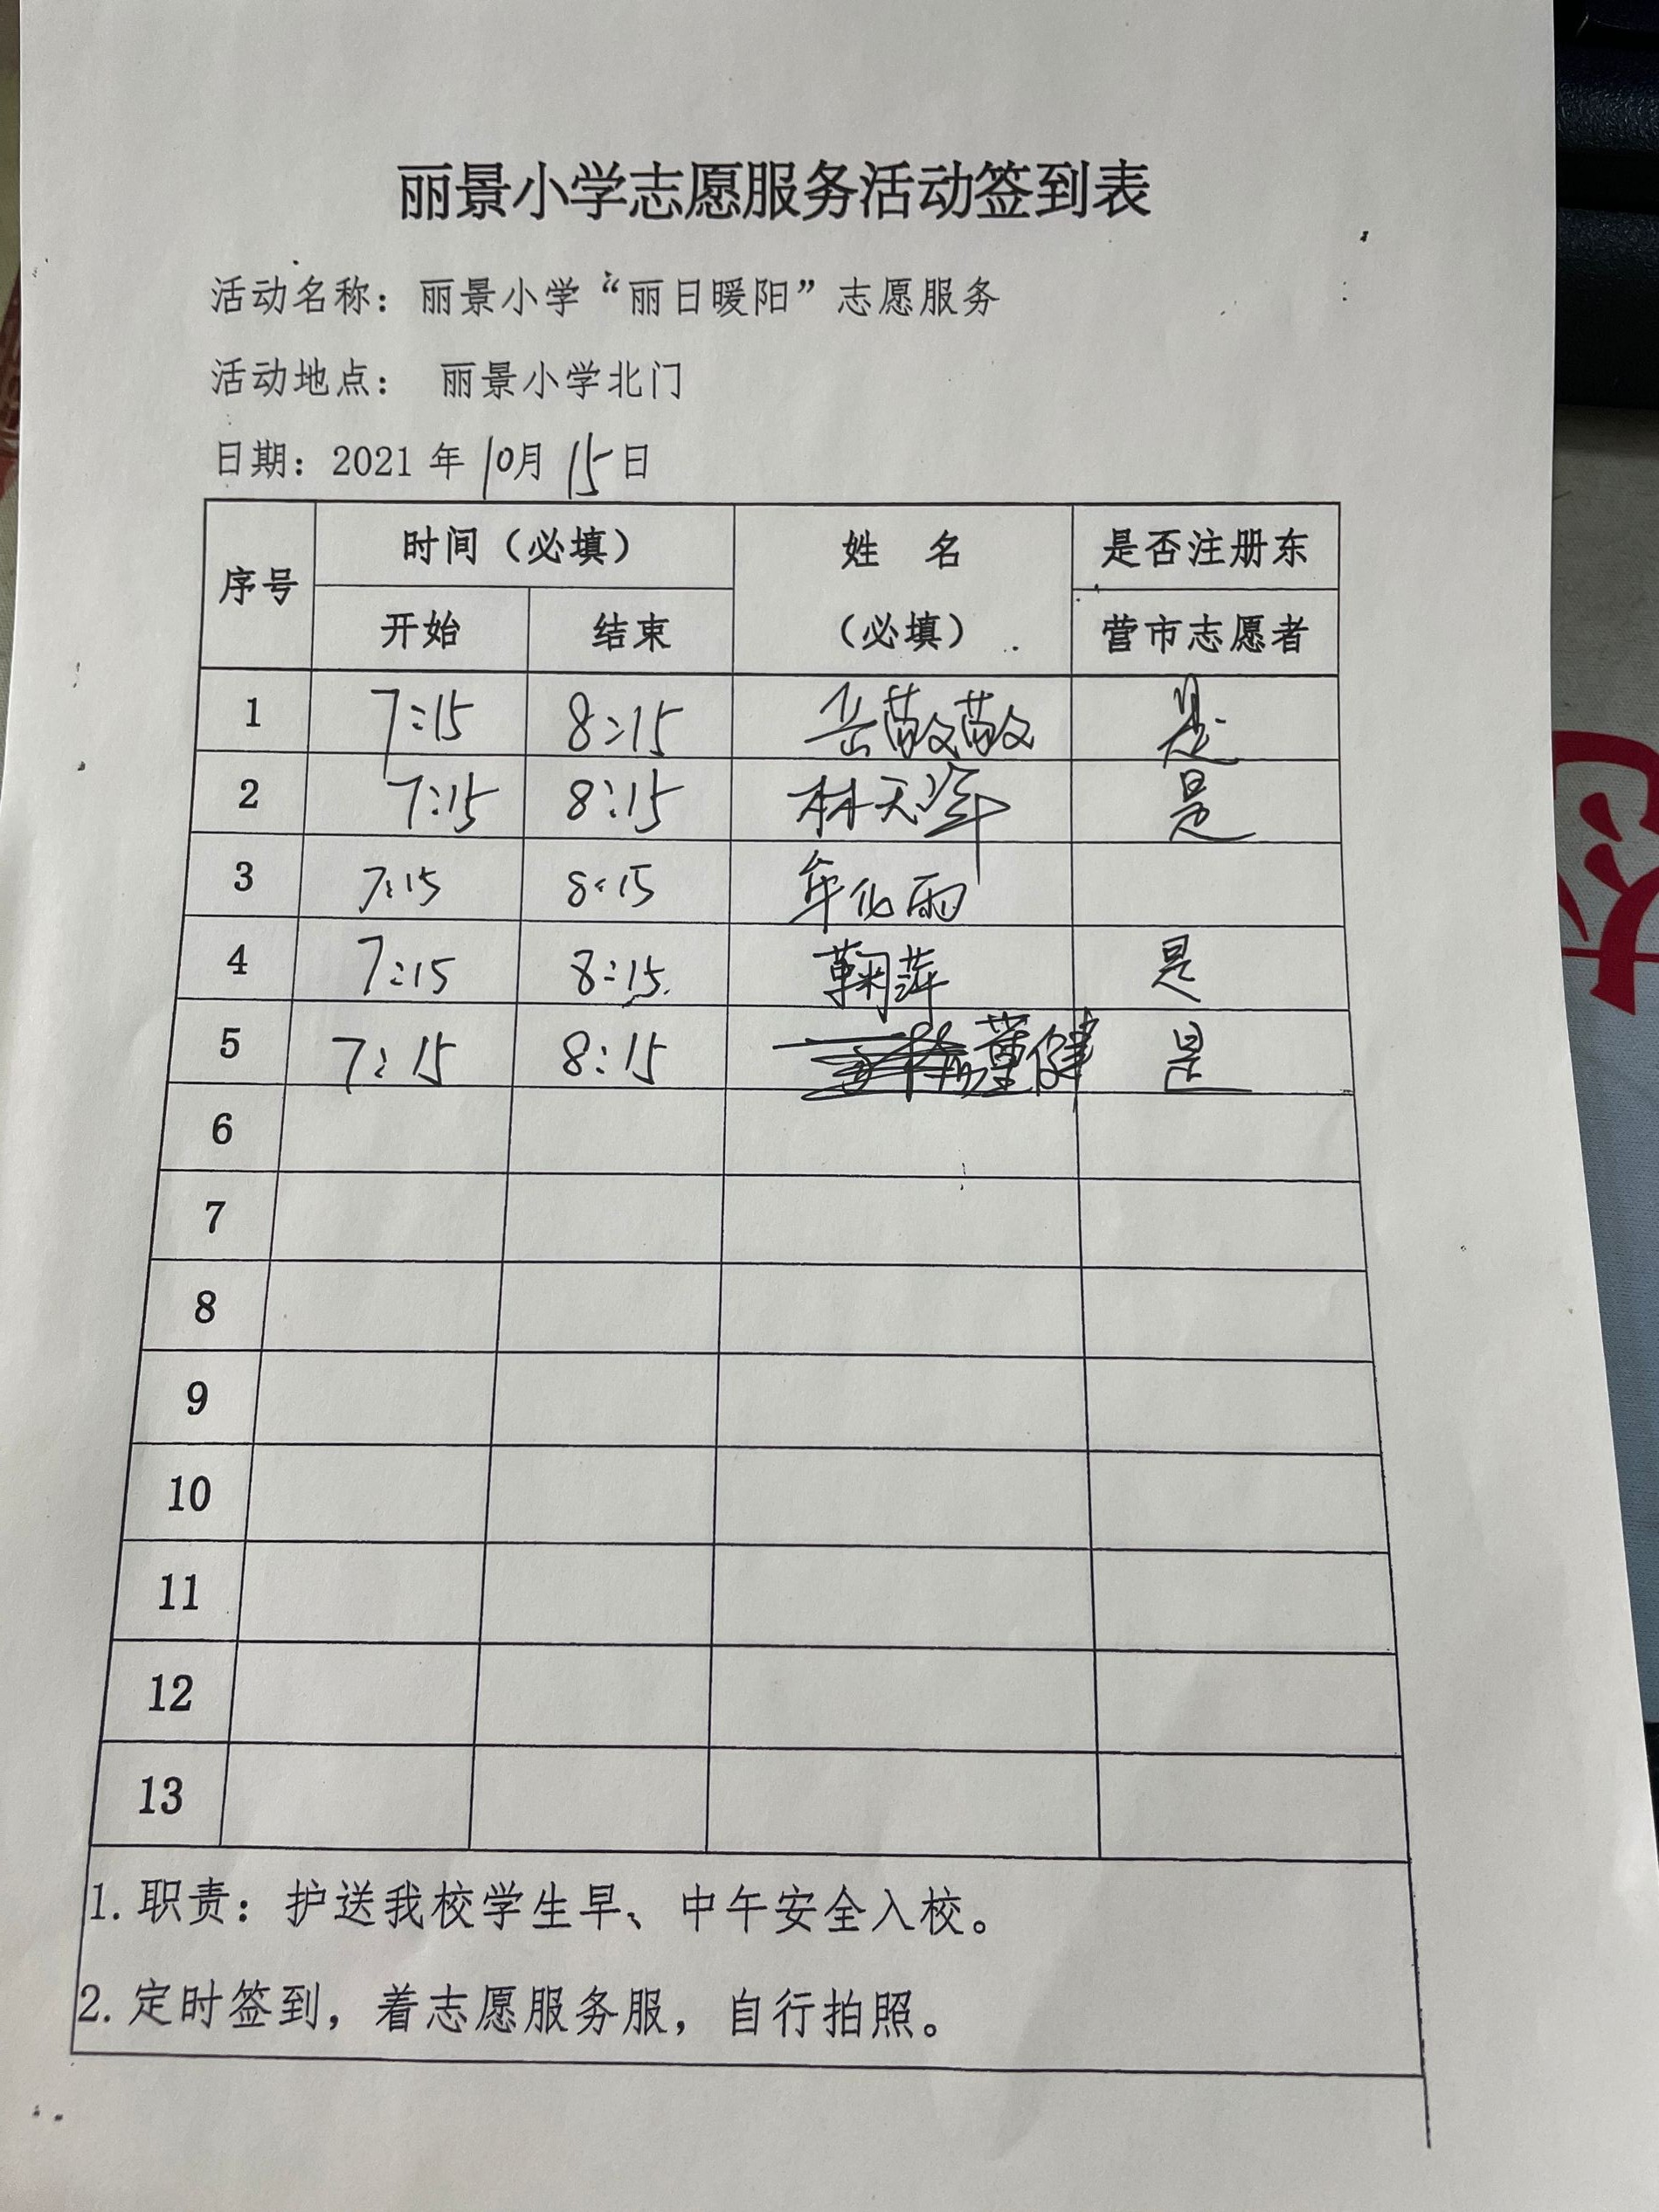 丽景小学志愿服务活动签到表
活动名称：丽景小学“丽日暖阳”志愿服务
活动地点： 丽景小学北门
日期：2021 年 10月 15日
序号 时间（必填） 姓 名 （必填） 是否注册东营市志愿者
开始 结束
1 7:15 8:15 岳敬敬 是
2 7:15 8:15 林天 是
3 7:15 8:15 牟化雨
4 7:15 8:15 鞠萍 是
5 7:15 8:15 董健 是
6
7
8
9
10
11
12
13
1. 职责：护送我校学生早、中午安全入校。
2. 定时签到，着志愿服务服，自行拍照。